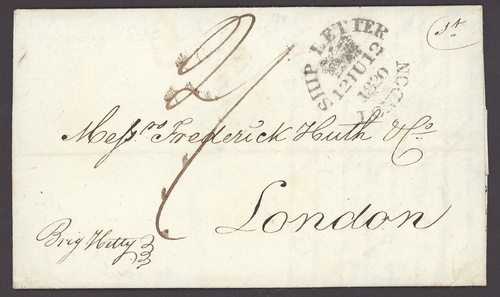 2/
SHIP LETTER
12JU12
1820
LONDON
Messrs Frederick Huth & Co
London
Brig Hetty